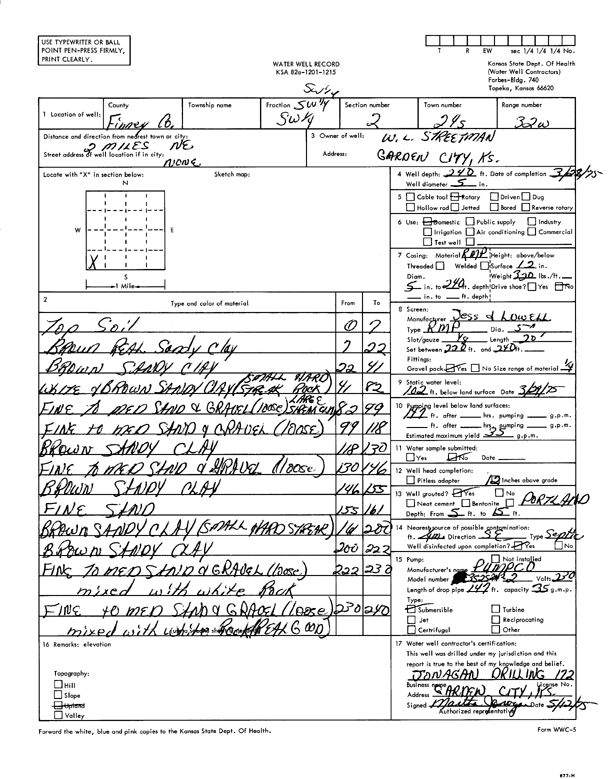 USE TYPEWRITER OR BALL
POINT PEN-PRESS FIRMLY,
PRINT CLEARLY.
WATER WELL RECORD
KSA 82a-1201-1215
T R EW sec 1/4 1/4 1/4 No.
Kansas State Dept. Of Health
(Water Well Contractors)
Forbes-Bldg. 740
Topeka, Kansas 66620
SW 1/4
1 Location of well:
County
Finney Co.
Township name
Fraction SW 1/4
SW 1/4
Section number
2
Town number
24s
Range number
32w
Distance and direction from nearest town or city:
2 MILES NE
Street address of well location if in city:
NONE
3 Owner of well: W. L. STREETMAN
Address: GARDEN CITY, KS.
Locate with "X" in section below: Sketch map:
N
W E
X
S
1 Mile
4 Well depth: 240 ft. Date of completion 3/28/75
Well diameter 5 in.
5 Cable tool Rotary Driven Dug
Hollow rod Jetted Bored Reverse rotary
6 Use: Domestic Public supply Industry
Irrigation Air conditioning Commercial
Test well
7 Casing: Material RMP Height: above/below
Threaded Welded Surface 12 in.
Diam. Weight 320 lbs./ft.
5 in. to 240 ft. depth Drive shoe? Yes No
in. to ft. depth
2 Type and color of material From To
Top Soil 0 7
Brown Real Sandy Clay 7 22
BROWN SANDY CLAY 22 41
WHITE & BROWN SANDY CLAY (SMALL HARD STREAK ROCK 41 82
FINE TO MED SAND & GRAVEL (loose) 82 99
FINE TO MED SAND & GRAVEL (loose) 99 118
BROWN SANDY CLAY 118 130
FINE TO MED SAND & GRAVEL (loose) 130 146
BROWN SANDY CLAY 146 155
FINE SAND 155 161
BROWN SANDY CLAY (SMALL HARD STREAK) 161 200
BROWN SANDY CLAY 200 222
FINE TO MED SAND & GRAVEL (loose) 222 230
mixed with white Rock
FINE TO MED SAND & GRAVEL (loose) 230 240
mixed with Rock (REAL GOOD)
8 Screen:
Manufacturer Jess & Lowell
Type RMP Dia. 5"
Slot/gauze 1/8 Length 20'
Set between 220 ft. and 240 ft.
Fittings:
Gravel pack Yes No Size range of material 1/8
9 Static water level:
102 ft. below land surface Date 3/29/75
10 Pumping level below land surfaces:
147 ft. after hrs. pumping g.p.m.
ft. after hrs. pumping g.p.m.
Estimated maximum yield 35 g.p.m.
11 Water sample submitted:
Yes No Date
12 Well head completion:
Pitless adapter 12 Inches above grade
13 Well grouted? Yes No
Neat cement Bentonite PORTLAND
Depth: From 5 ft. to 15 ft.
14 Nearest source of possible contamination:
ft. Direction SE Type Septic
Well disinfected upon completion? Yes No
15 Pump: Not installed
Manufacturer's name PUMPCO
Model number Volts 230
Length of drop pipe 147 ft. capacity 35 g.m.p.
Type:
Submersible Turbine
Jet Reciprocating
Centrifugal Other
16 Remarks: elevation
Topography:
Hill
Slope
Upland
Valley
17 Water well contractor's certification:
This well was drilled under my jurisdiction and this
report is true to the best of my knowledge and belief.
JONAGAN DRILLING 172
Business name License No.
Address GARDEN CITY, KS.
Signed Martha Jonagan Date 5/12/75
Authorized representative
Forward the white, blue and pink copies to the Kansas State Dept. Of Health.
Form WWC-5